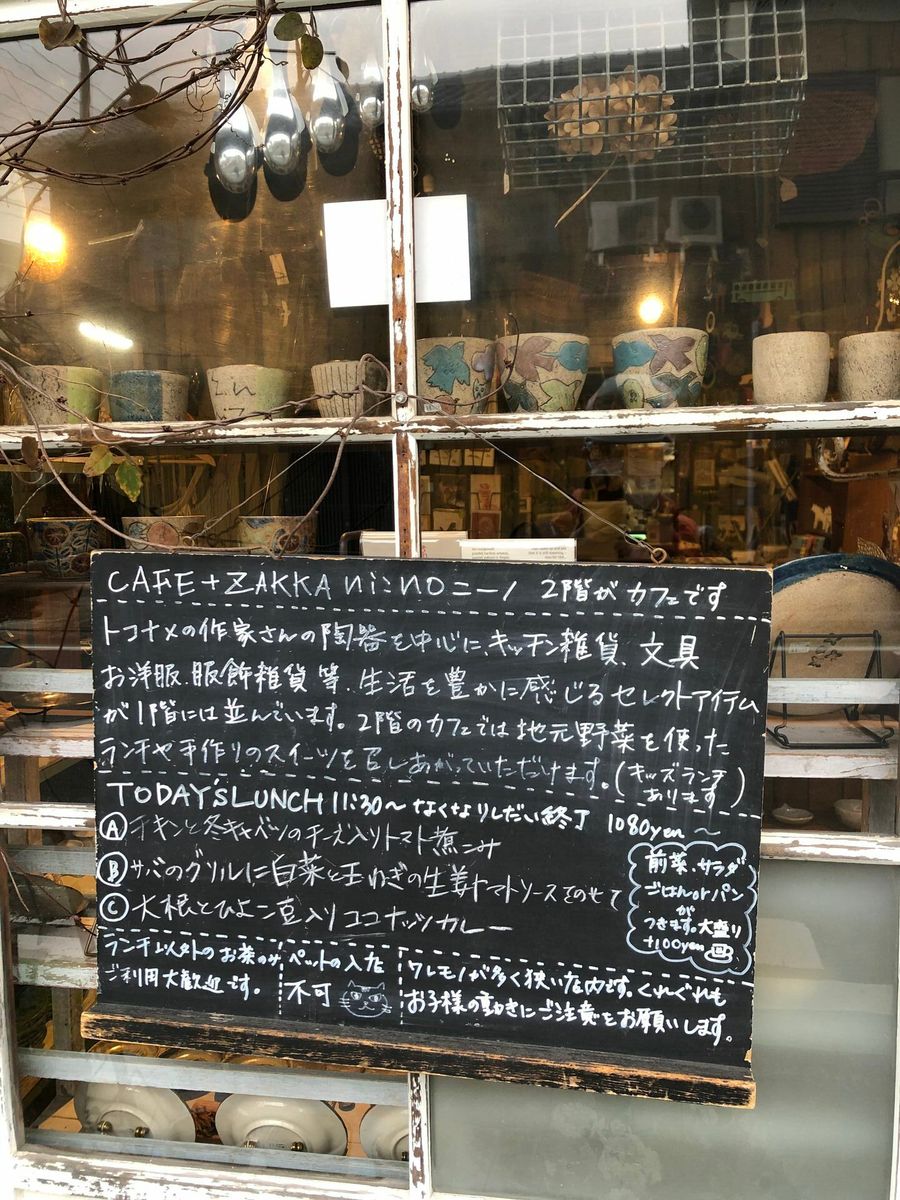 CAFE+ZAKKA ni:no ニーノ 2階がカフェです
トコナメの作家さんの陶器を中心に、キッチン雑貨、文具
お洋服、服飾雑貨 等、生活を豊かに感じるセレクトアイテム
が1階には並んでいます。2階のカフェでは地元野菜を使った
ランチや手作りのスイーツを召しあがっていただけます。(キッズランチあります)
TODAY'S LUNCH 11:30〜 なくなりしだい終了 1080yen〜
Ⓐチキンと冬キャベツのチーズ入りトマト煮こみ
Ⓑサバのグリルに白菜と玉ねぎの生姜トマトソースをのせて
Ⓒ大根とひよこ豆入りココナッツカレー
前菜、サラダ
ごはんorパン
が
つきます。大盛り
+100yen
ランチ以外のお茶のみ
ご利用大歓迎です。
ペットの入店
不可
ワレモノが多く狭い店内です。くれぐれも
お子様の動きにご注意をお願いします。